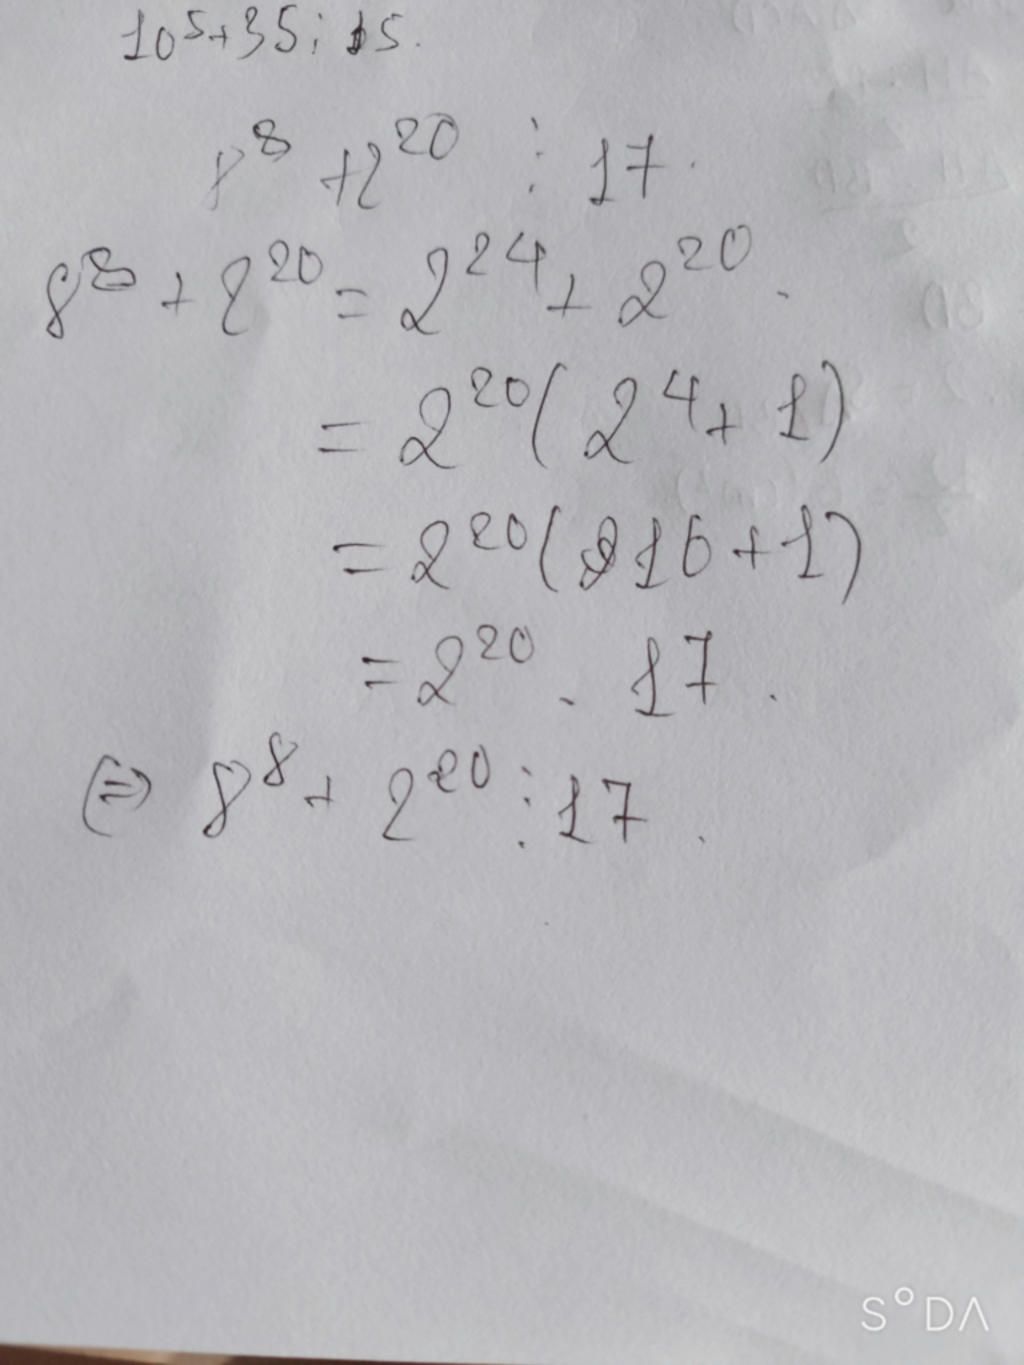 10⁵+35⋮15.
8⁸+2²⁰ ⋮ 17.
8⁸+2²⁰=2²⁴+2²⁰.
=2²⁰(2⁴+1)
=2²⁰(16+1)
=2²⁰.17.
(=) 8⁸+2²⁰⋮17.
S°DΛ